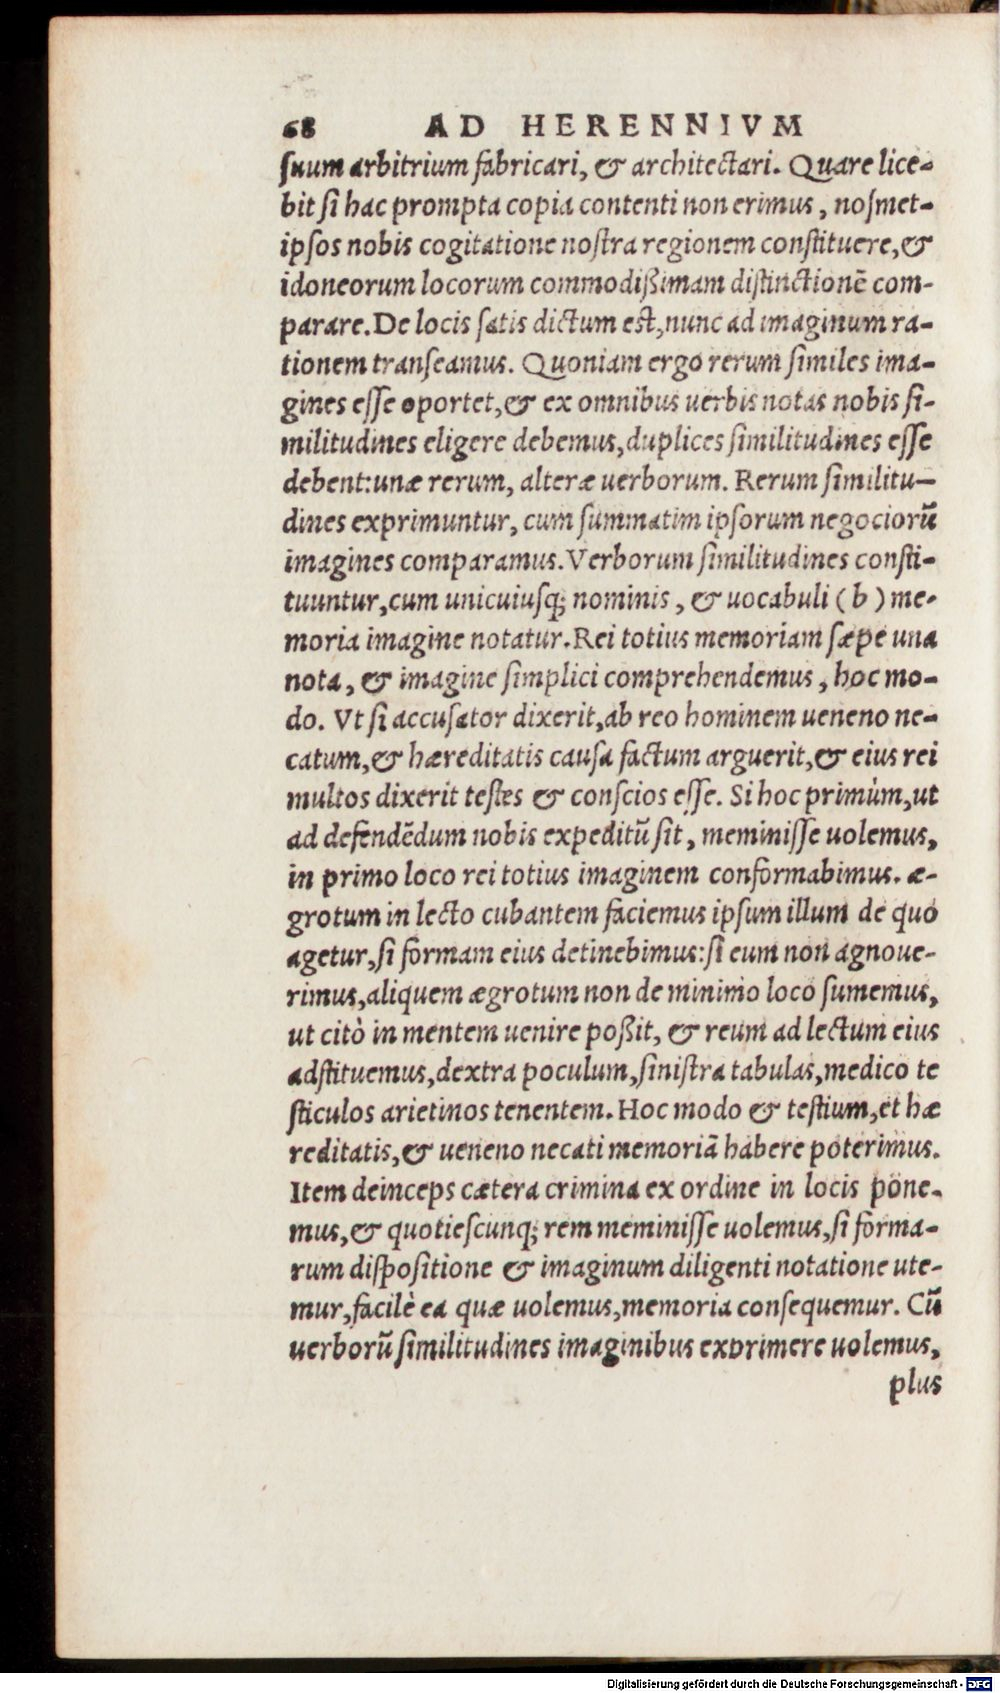 68 AD HERENNIVM
suum arbitrium fabricari, & architectari. Quare lice-
bit si hac prompta copia contenti non erimus, nosmet-
ipsos nobis cogitatione nostra regionem constituere, &
idoneorum locorum commodißimam distinctionē com-
parare. De locis satis dictum est, nunc ad imaginum ra-
tionem transeamus. Quoniam ergo rerum similes ima-
gines esse oportet, & ex omnibus uerbis notas nobis si-
militudines eligere debemus, duplices similitudines esse
debent: unæ rerum, alteræ uerborum. Rerum similitu-
dines exprimuntur, cum summatim ipsorum negociorū
imagines comparamus. Verborum similitudines consti-
tuuntur, cum unicuiusq; nominis, & uocabuli (b) me-
moria imagine notatur. Rei totius memoriam sæpe una
nota, & imagine simplici comprehendemus, hoc mo-
do. Vt si accusator dixerit, ab reo hominem ueneno ne-
catum, & hæreditatis causa factum arguerit, & eius rei
multos dixerit testes & conscios esse. Si hoc primùm, ut
ad defendēdum nobis expeditū sit, meminisse uolemus,
in primo loco rei totius imaginem conformabimus. æ-
grotum in lecto cubantem faciemus ipsum illum de quo
agetur, si formam eius detinebimus: si eum non agnoue-
rimus, aliquem ægrotum non de minimo loco sumemus,
ut citò in mentem uenire poßit, & reum ad lectum eius
adstituemus, dextra poculum, sinistra tabulas, medico te
sticulos arietinos tenentem. Hoc modo & testium, et hæ
reditatis, & ueneno necati memoriā habere poterimus.
Item deinceps cætera crimina ex ordine in locis pone-
mus, & quotiescunq; rem meminisse uolemus, si forma-
rum dispositione & imaginum diligenti notatione ute-
mur, facilè ea quæ uolemus, memoria consequemur. Cū
uerborū similitudines imaginibus exprimere uolemus,
plus
Digitalisierung gefördert durch die Deutsche Forschungsgemeinschaft - DFG